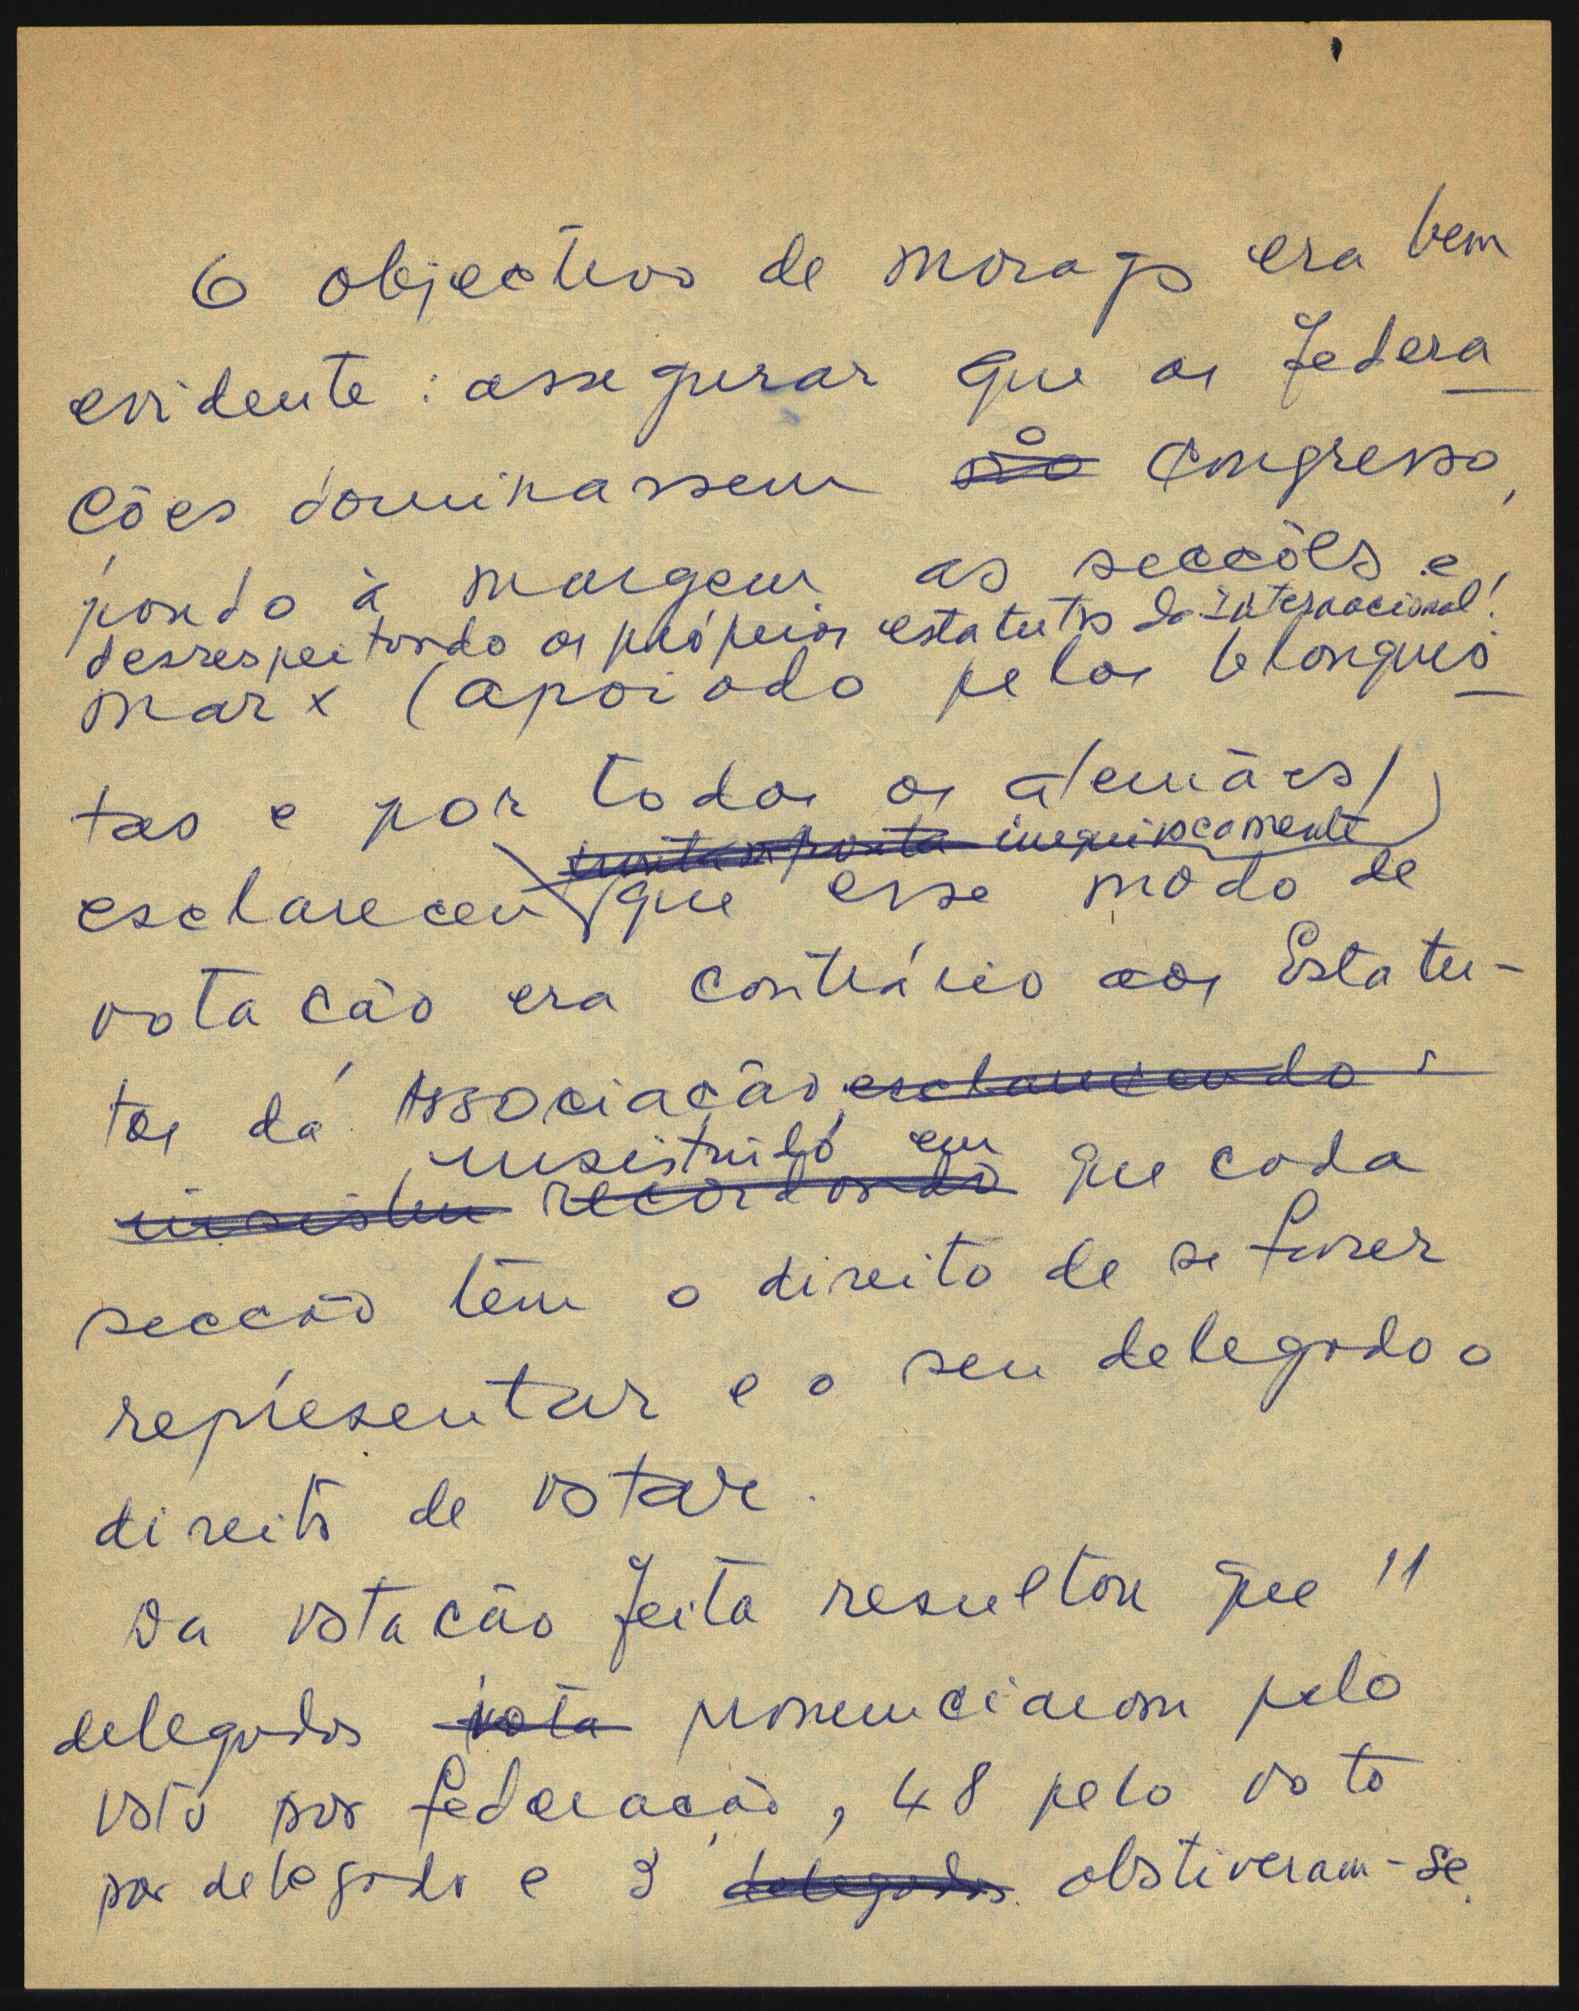 O objectivo de Morago era bem
evidente: assegurar que as Federa
ções dominassem o Congresso,
pondo à margem as secções e
desrespeitando os próprios estatutos da Internacional!
Marx (apoiado pelos blanquis
tas e por todos os alemães)
inequivocamente
esclareceu que esse modo de
votação era contrário aos Estatu-
tos da Associação esclarecendo
, insistindo em
insistiu recordando que cada
secção têm o direito de se fazer
representar e o seu delegado o
direito de votar.
Da votação feita resultou que 11
delegados vota pronunciaram pelo
voto por federação, 48 pelo voto
por delegado e 9 delegados abstiveram-se.